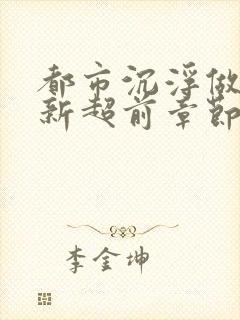 都市沉浮做
新超前章節
李金坤